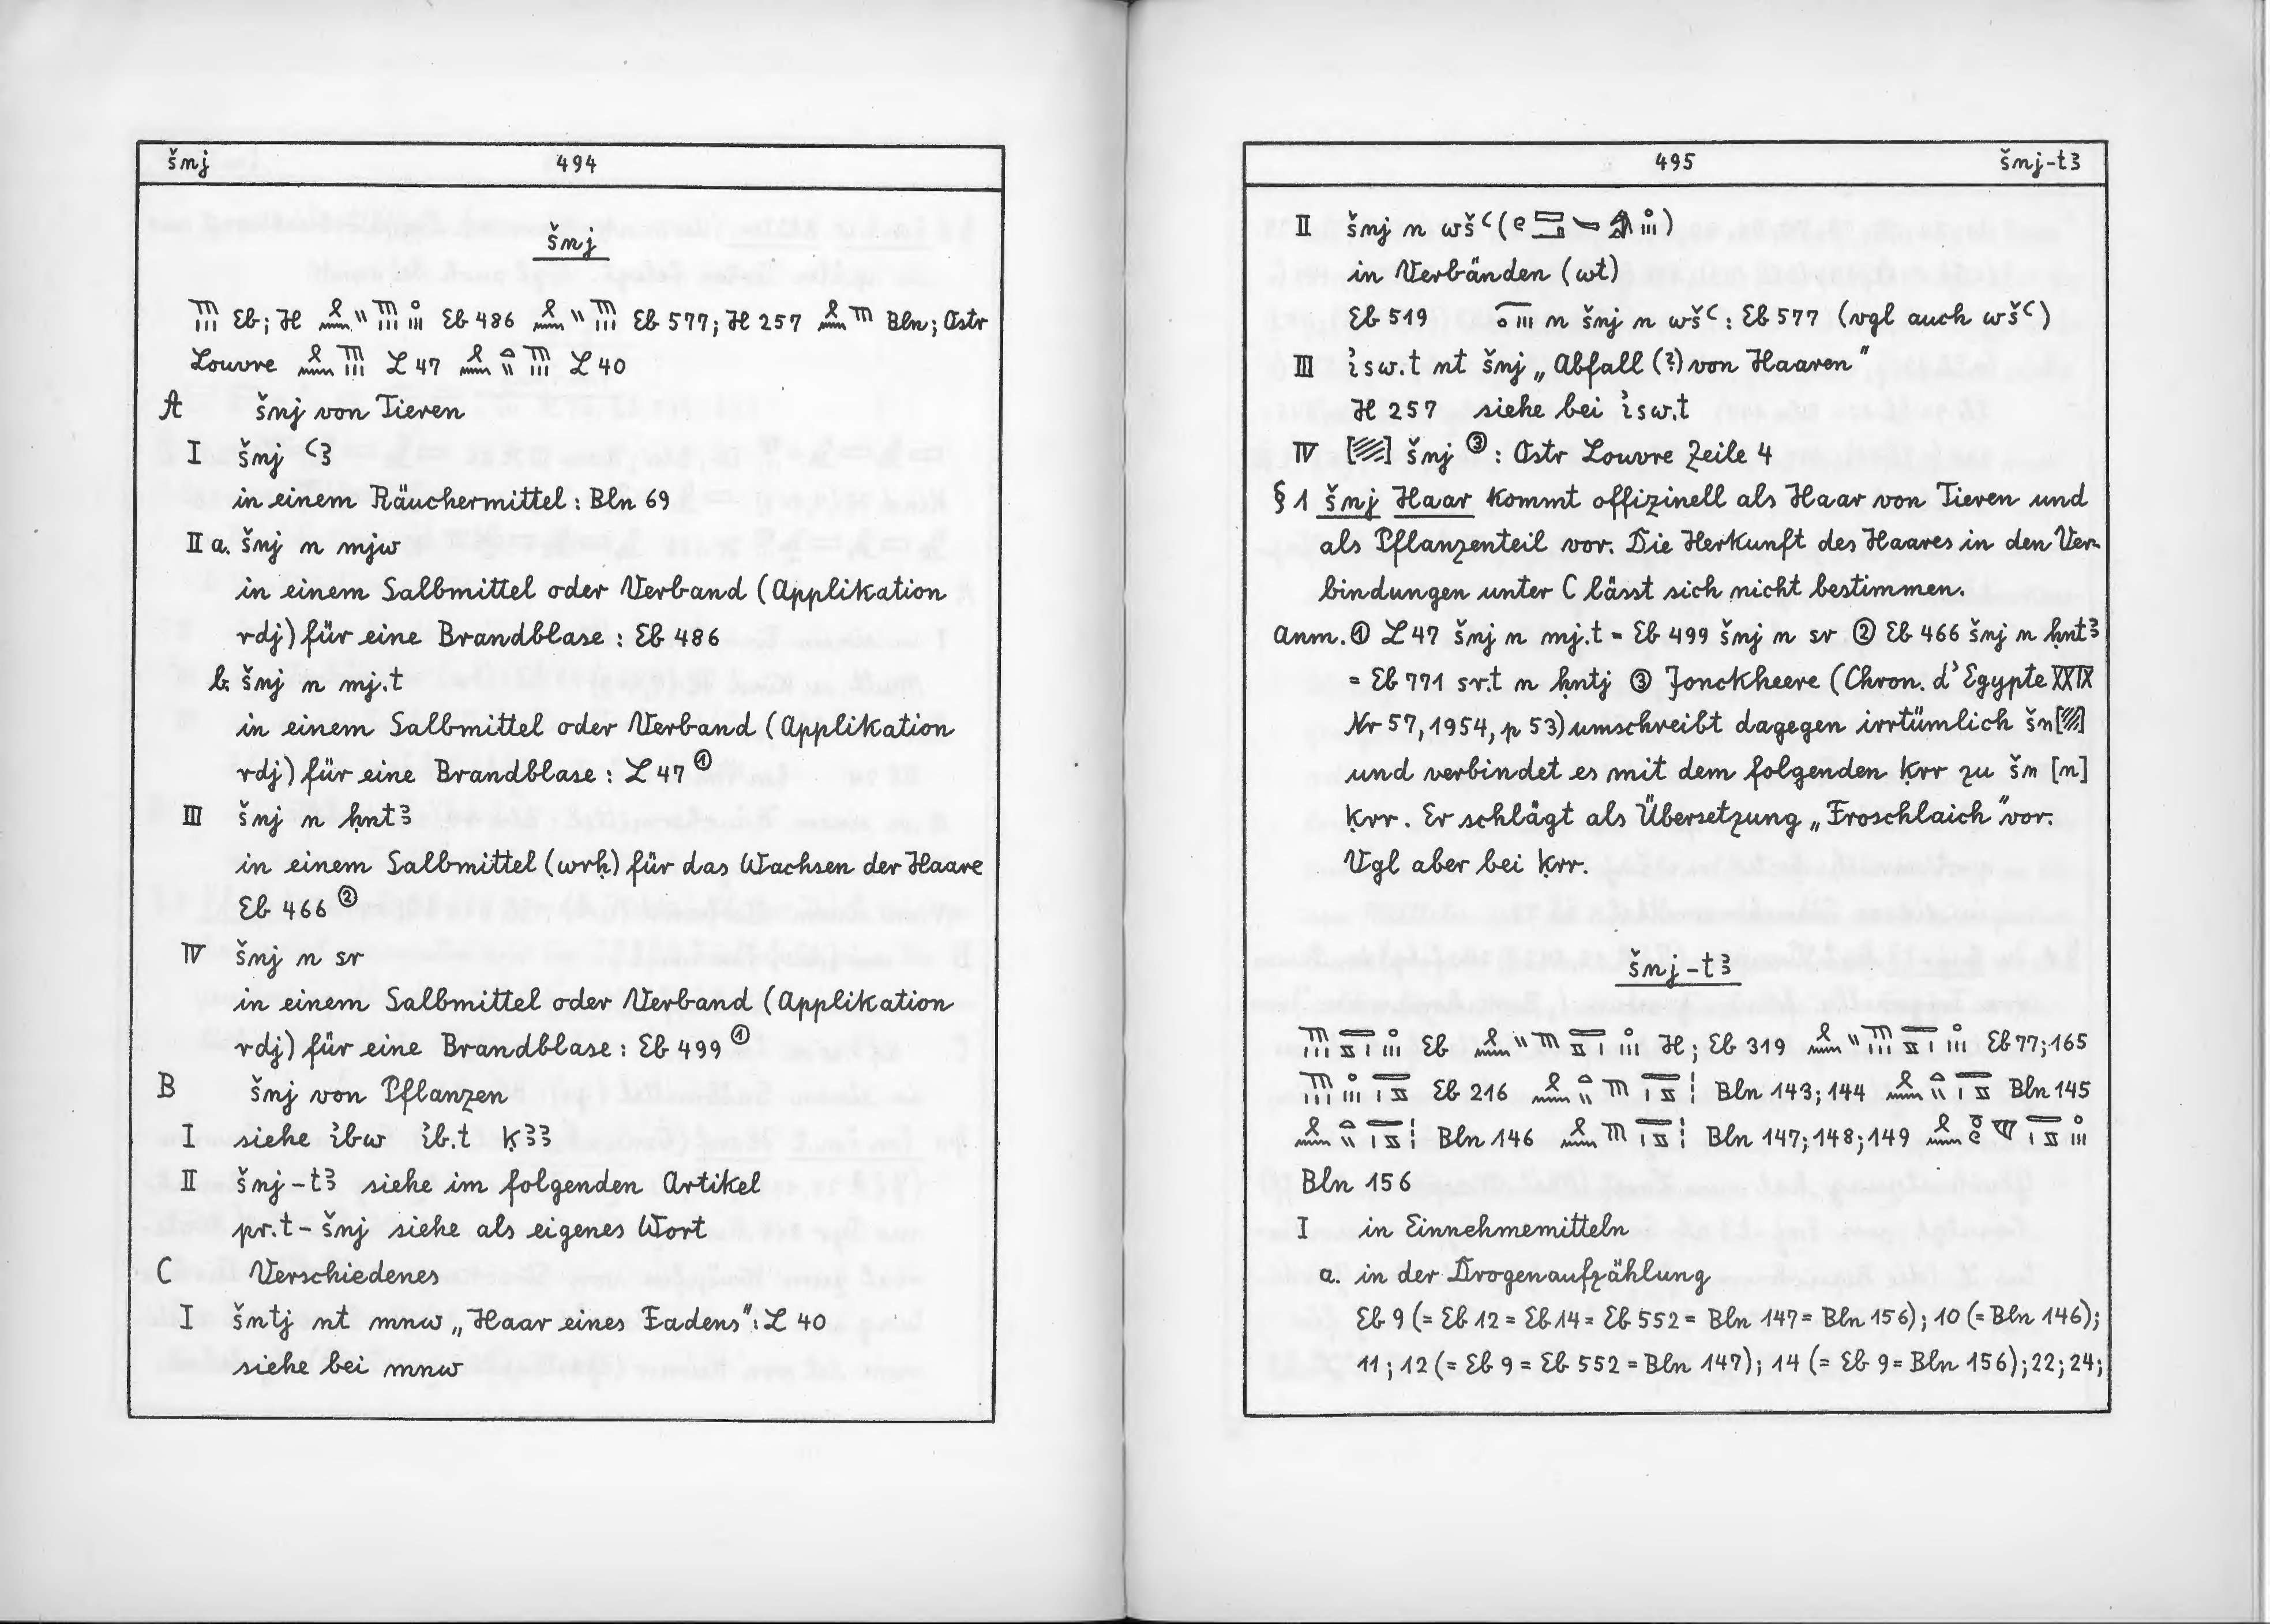 šnj 494
šnj
Eb; H Eb 486 Eb 577; H 257 Bln; Ostr
Louvre L 47 L 40
A šnj von Tieren
I šnj ꜥꜣ
in einem Räuchermittel: Bln 69
II a. šnj n mjw
in einem Salbmittel oder Verband (Applikation
rdj) für eine Brandblase: Eb 486
b. šnj n mj.t
in einem Salbmittel oder Verband (Applikation
rdj) für eine Brandblase: L 47 ①
III šnj n ḥntꜣ
in einem Salbmittel (wrḥ) für das Wachsen der Haare
Eb 466 ②
IV šnj n sr
in einem Salbmittel oder Verband (Applikation
rdj) für eine Brandblase: Eb 499 ①
B šnj von Pflanzen
I siehe ỉbw ỉb.t ḳꜣꜣ
II šnj-tꜣ siehe im folgenden Artikel
pr.t-šnj siehe als eigenes Wort
C Verschiedenes
I šntj nt mnw „Haar eines Fadens": L 40
siehe bei mnw
495 šnj-tꜣ
II šnj n wšꜥ ( )
in Verbänden (wt)
Eb 519 n šnj n wšꜥ: Eb 577 (vgl auch wšꜥ)
III ỉsw.t nt šnj „Abfall (?) von Haaren"
H 257 siehe bei ỉsw.t
IV [▨] šnj ③: Ostr Louvre Zeile 4
§ 1 šnj Haar kommt offizinell als Haar von Tieren und
als Pflanzenteil vor. Die Herkunft des Haares in den Ver-
bindungen unter C lässt sich nicht bestimmen.
Anm. ① L 47 šnj n mj.t = Eb 499 šnj n sr ② Eb 466 šnj n ḥntꜣ
= Eb 771 sr.t n ḥntj ③ Jonckheere (Chron. d'Egypte XXIX
Nr 57, 1954, p 53) umschreibt dagegen irrtümlich šn[▨]
und verbindet es mit dem folgenden ḳrr zu šn [n]
ḳrr. Er schlägt als Übersetzung „Froschlaich" vor.
Vgl aber bei ḳrr.
šnj-tꜣ
Eb H; Eb 319 Eb 77; 165
Eb 216 Bln 143; 144 Bln 145
Bln 146 Bln 147; 148; 149
Bln 156
I in Einnehmemitteln
a. in der Drogenaufzählung
Eb 9 (= Eb 12 = Eb 14 = Eb 552 = Bln 147 = Bln 156); 10 (= Bln 146);
11; 12 (= Eb 9 = Eb 552 = Bln 147); 14 (= Eb 9 = Bln 156); 22; 24;